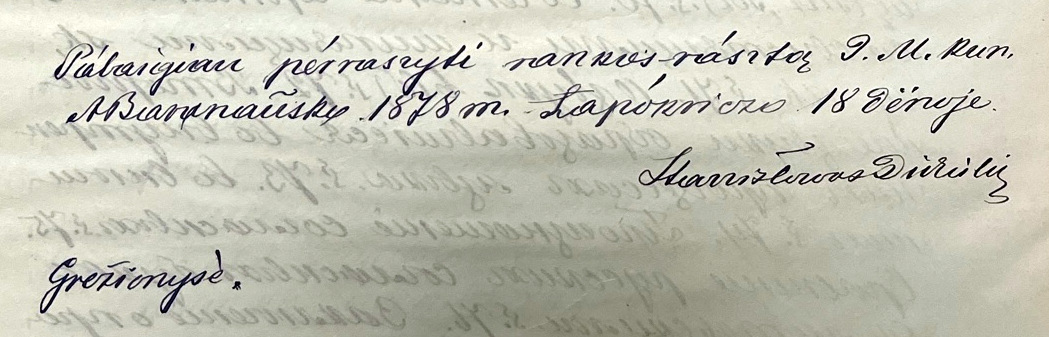 Pábaigiau pérraszyti rankos-násztą J. M. kun.
A Baranáusko 1878 m. Łapókriczo 18 dënoje.
Stanisłowas Didžiulis
Grežionysè.